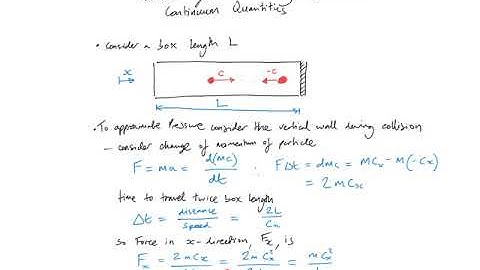 Continuum Quantities
• Consider a box length L
x
c
-c
L
• To approximate Pressure consider the vertical wall during collision
– consider change of momentum of particle
F = ma = d(mc)/dt . FΔt = dmc = mCx - m(-Cx)
= 2mCx
time to travel twice box length
Δt = distance/speed = 2L/Cx
so Force in x-direction, Fx, is
Fx = 2mCx = 2mCx² = mCx²